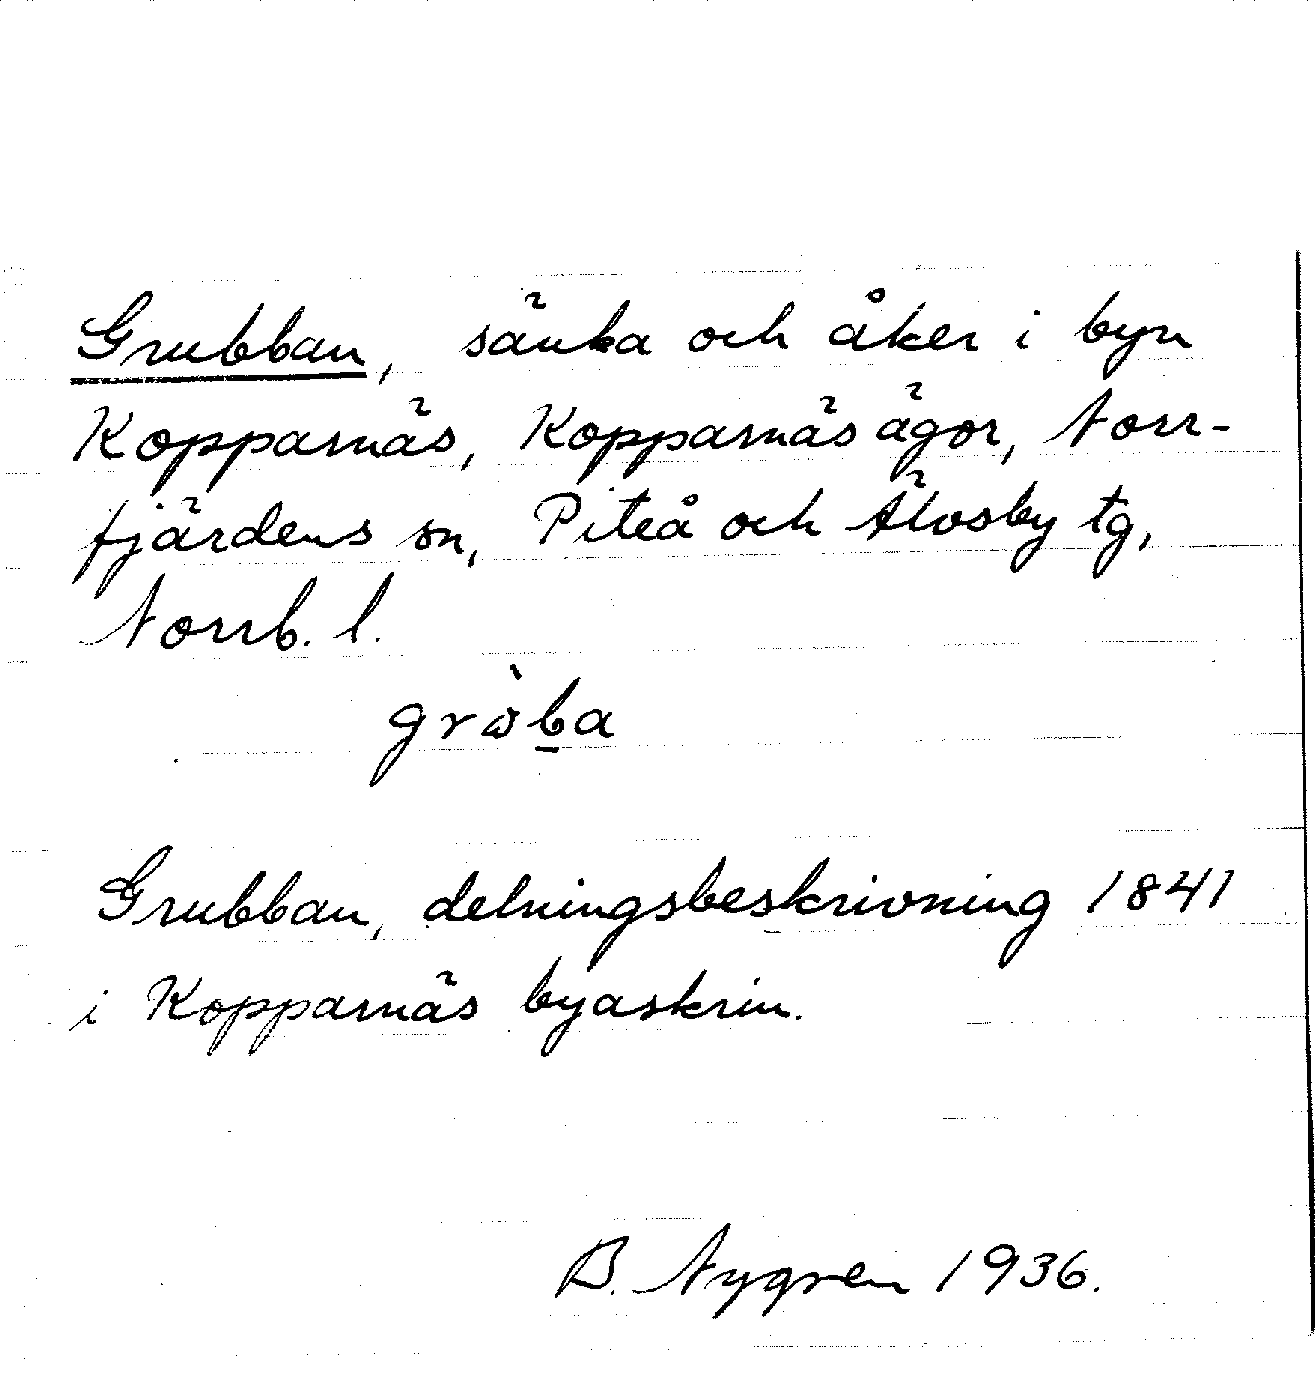 Grubban, sänka och åker i byn
Kopparnäs, Kopparnäs ägor, Norr-
fjärdens sn, Piteå och Älvsby tg,
Norrb. l.
grὼb̲a
Grubban, delningsbeskrivning 1841
i Kopparnäs byaskrin.
B. Nygren 1936.